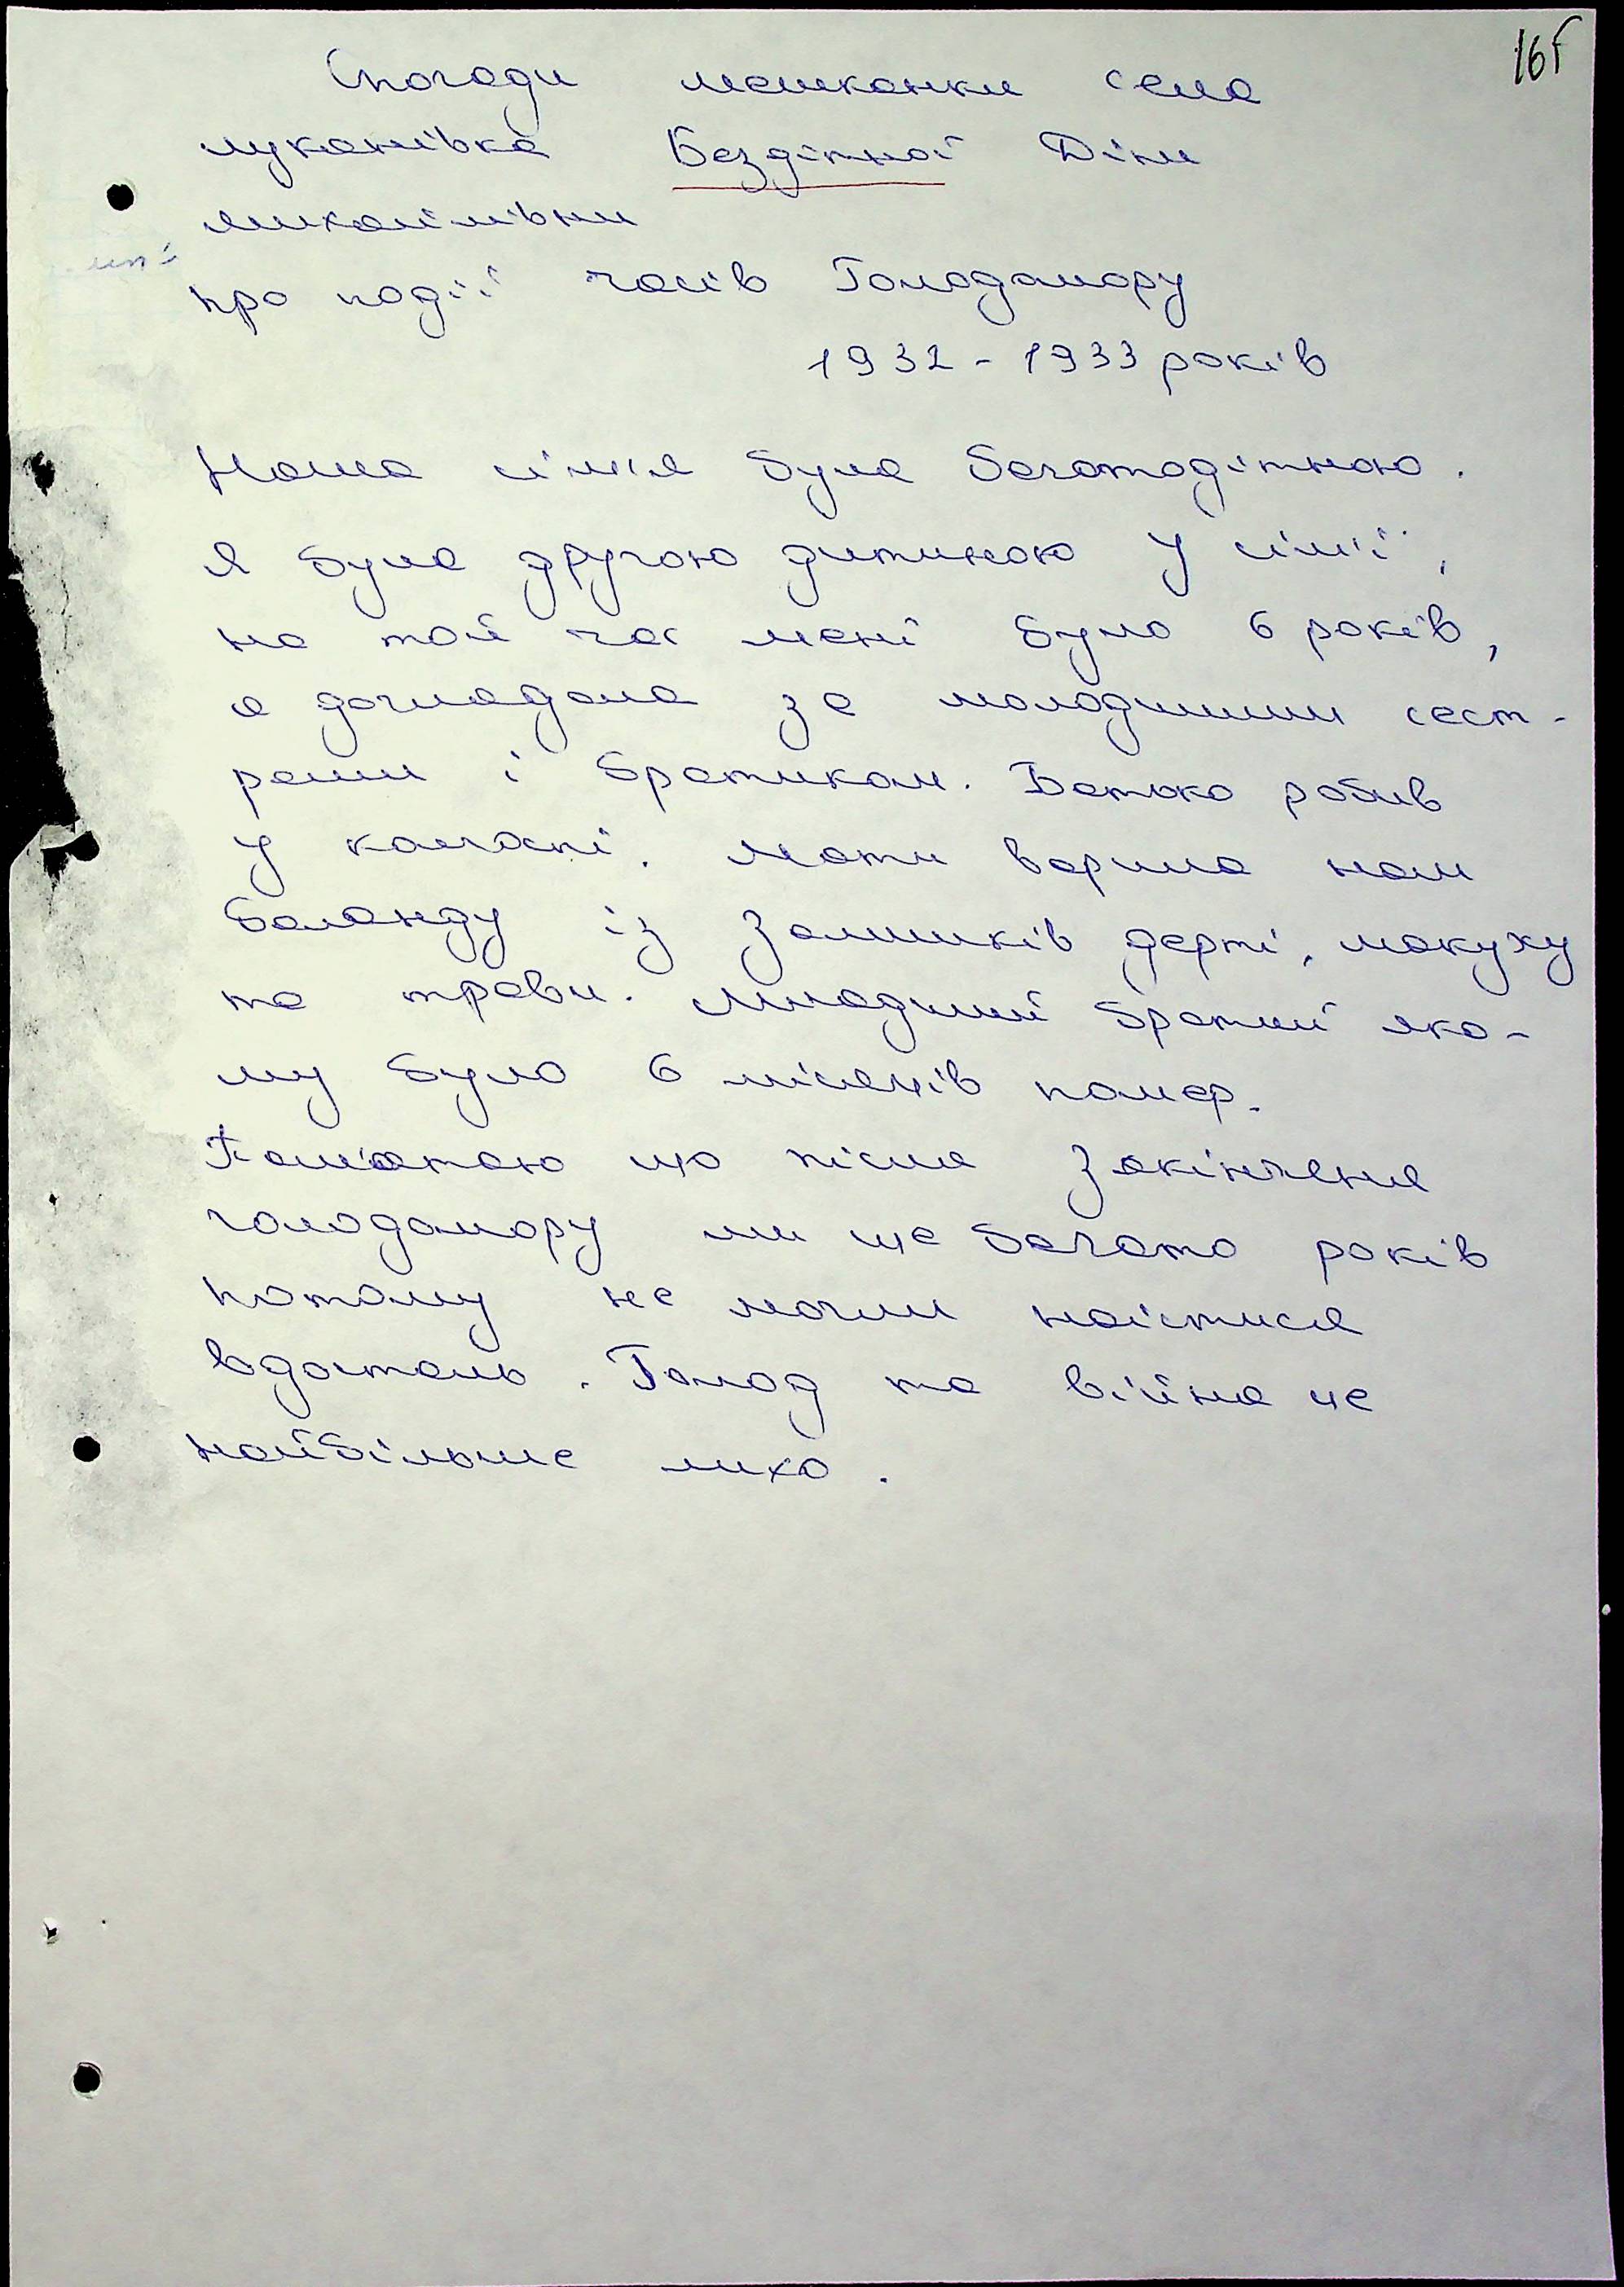 Спогади мешканки села
Луканівка Бездітної Діни
Михайлівни
про події часів Голодомору
1932 - 1933 років
Наша сім'я була багатодітною.
Я була другою дитиною у сім'ї,
на той час мені було 6 років,
я доглядала за молодшими сест-
рами і братиком. Батько робив
у колгоспі. Мати варила нам
баланду із залишків дерті, макуху
та трави. Младший братий яко-
му було 6 місяців помер.
Пам'ятаю що після закінченя
голодомору ми ще багато років
потому не могли наїстися
вдосталь. Голод та війна це
найбільше лихо.